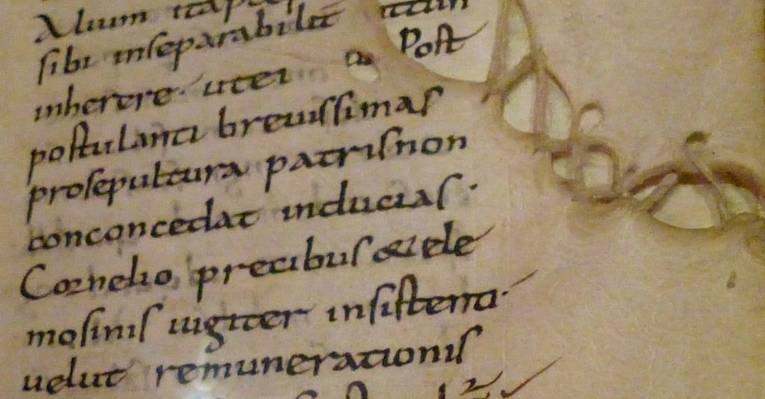 Alium ita
sibi inseparabilit
inherere. utei Post
postulanti breuissimas
prosepultura patrisnon
conconcedat inducias.
Cornelio precibus & ele
mosinis iugiter insistenti.
uelut remunerationis